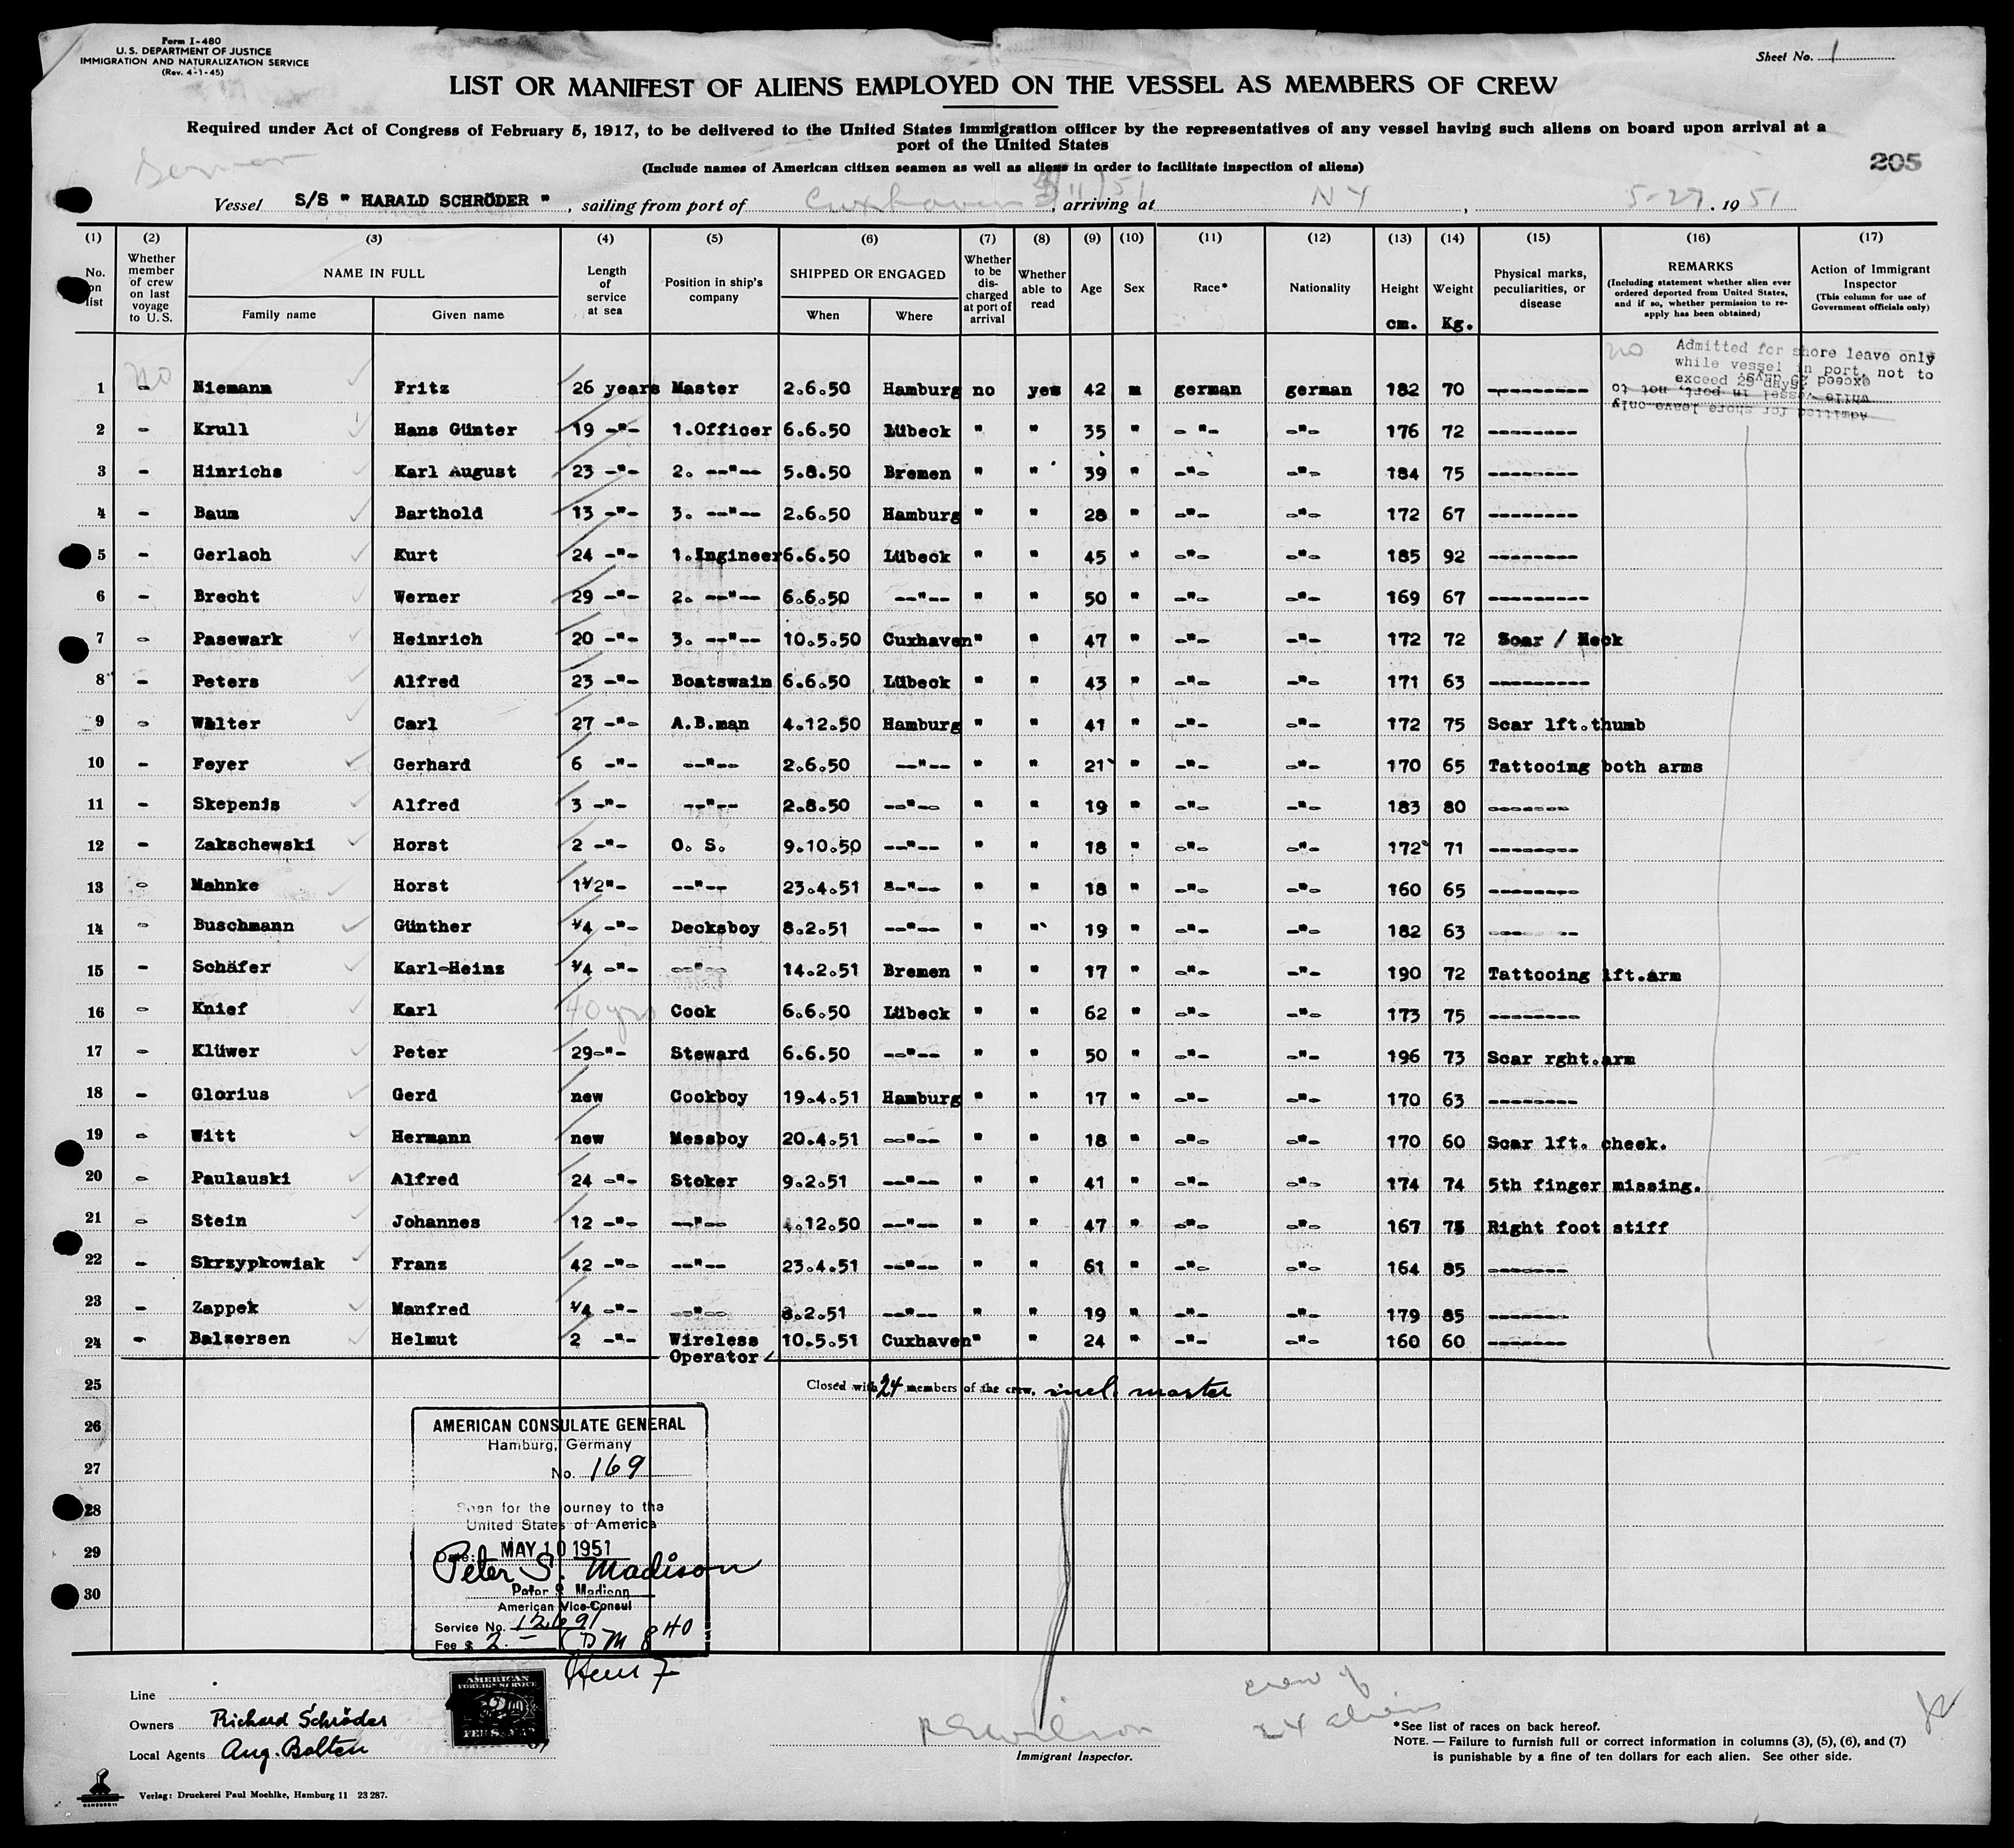 Form I-480
U.S. DEPARTMENT OF JUSTICE
IMMIGRATION AND NATURALIZATION SERVICE
(Rev. 4-1-45)
Sheet No. 1
LIST OR MANIFEST OF ALIENS EMPLOYED ON THE VESSEL AS MEMBERS OF CREW
Required under Act of Congress of February 5, 1917, to be delivered to the United States immigration officer by the representatives of any vessel having such aliens on board upon arrival at a
port of the United States
(Include names of American citizen seamen as well as aliens in order to facilitate inspection of aliens)
205
German
Vessel S/S " HARALD SCHRÖDER " , sailing from port of Cuxhaven 5/11/51, arriving at N Y , 5-27, 1951
(1) (2) (3) (4) (5) (6) (7) (8) (9) (10) (11) (12) (13) (14) (15) (16) (17)
No. on list
Whether member of crew on last voyage to U. S.
NAME IN FULL
Family name Given name
Length of service at sea
Position in ship's company
SHIPPED OR ENGAGED
When Where
Whether to be discharged at port of arrival
Whether able to read
Age
Sex
Race*
Nationality
Height cm.
Weight Kg.
Physical marks, peculiarities, or disease
REMARKS
(Including statement whether alien ever ordered deported from United States, and if so, whether permission to reapply has been obtained)
Action of Immigrant Inspector
(This column for use of Government officials only)
no Admitted for shore leave only
while vessel in port, not to
exceed 29 days.
Admitted for shore leave only
while vessel in port, not to
exceed 29 days.
no
1 - Niemann Fritz 26 years Master 2.6.50 Hamburg no yes 42 m german german 182 70 ---------
2 - Krull Hans Günter 19 -"- 1.Officer 6.6.50 Lübeck " " 35 " - "- -"- 176 72 --------
3 - Hinrichs Karl August 23 -"- 2. --"-- 5.8.50 Bremen " " 39 " -"- -"- 184 75 --------
4 - Baum Barthold 13 -"- 3. --"-- 2.6.50 Hamburg " " 28 " -"- -"- 172 67 --------
5 - Gerlach Kurt 24 -"- 1.Engineer 6.6.50 Lübeck " " 45 " -"- -"- 185 92 --------
6 - Brecht Werner 29 -"- 2. --"-- 6.6.50 --"-- " " 50 " -"- -"- 169 67 ---------
7 - Pasewark Heinrich 20 -"- 3. --"-- 10.5.50 Cuxhaven " " 47 " -"- -"- 172 72 Scar / Neck
8 - Peters Alfred 23 -"- Boatswain 6.6.50 Lübeck " " 43 " -"- -"- 171 63 ---------
9 - Walter Carl 27 -"- A.B.man 4.12.50 Hamburg " " 41 " -"- -"- 172 75 Scar lft.thumb
10 - Feyer Gerhard 6 -"- --"-- 2.6.50 --"-- " " 21 " -"- -"- 170 65 Tattooing both arms
11 - Skepenis Alfred 3 -"- --"-- 2.8.50 --"-- " " 19 " -"- -"- 183 80 -------
12 - Zakschewski Horst 2 -"- O. S. 9.10.50 --"-- " " 18 " -"- -"- 172 71 --------
13 - Mahnke Horst 1½"- --"-- 23.4.51 --"-- " " 18 " -"- -"- 160 65 --------
14 - Buschmann Günther ¼ -"- Decksboy 8.2.51 --"-- " " 19 " -"- -"- 182 63 --------
15 - Schäfer Karl-Heinz ¼ -"- --"-- 14.2.51 Bremen " " 17 " -"- -"- 190 72 Tattooing lft.arm
16 - Knief Karl 40 yrs Cook 6.6.50 Lübeck " " 62 " -"- -"- 173 75 --------
17 - Klüwer Peter 29-"- Steward 6.6.50 --"-- " " 50 " -"- -"- 196 73 Scar rght.arm
18 - Glorius Gerd new Cookboy 19.4.51 Hamburg " " 17 " -"- -"- 170 63 --------
19 - Witt Hermann new Messboy 20.4.51 --"-- " " 18 " -"- -"- 170 60 Scar lft. cheek.
20 - Paulauski Alfred 24 -"- Stoker 9.2.51 --"-- " " 41 " -"- -"- 174 74 5th finger missing.
21 - Stein Johannes 12 -"- --"-- 4.12.50 --"-- " " 47 " -"- -"- 167 75 Right foot stiff
22 - Skrzypkowiak Franz 42 -"- --"-- 23.4.51 --"-- " " 61 " -"- -"- 164 85 -------
23 - Zappek Manfred ¼ -"- --"-- 8.2.51 --"-- " " 19 " -"- -"- 179 85 -------
24 - Balzersen Helmut 2 -"- Wireless Operator 10.5.51 Cuxhaven " " 24 " -"- -"- 160 60 -------
25 Closed with 24 members of the crew, incl. master
26
27
28
29
30
AMERICAN CONSULATE GENERAL
Hamburg, Germany
No. 169
Seen for the journey to the
United States of America
Date: MAY 10 1951
Peter S. Madison
Peter S. Madison
American Vice-Consul
Service No. 12691
Fee $ 2.- (DM 8 40
AMERICAN
FOREIGN SERVICE
FEE STAMP
Line
Owners Richard Schröder
Local Agents Aug. Bolten
R E Wilson
Immigrant Inspector.
crew of
24 aliens
*See list of races on back hereof.
NOTE. — Failure to furnish full or correct information in columns (3), (5), (6), and (7)
is punishable by a fine of ten dollars for each alien. See other side.
Verlag: Druckerei Paul Moehlke, Hamburg 11 23 287.